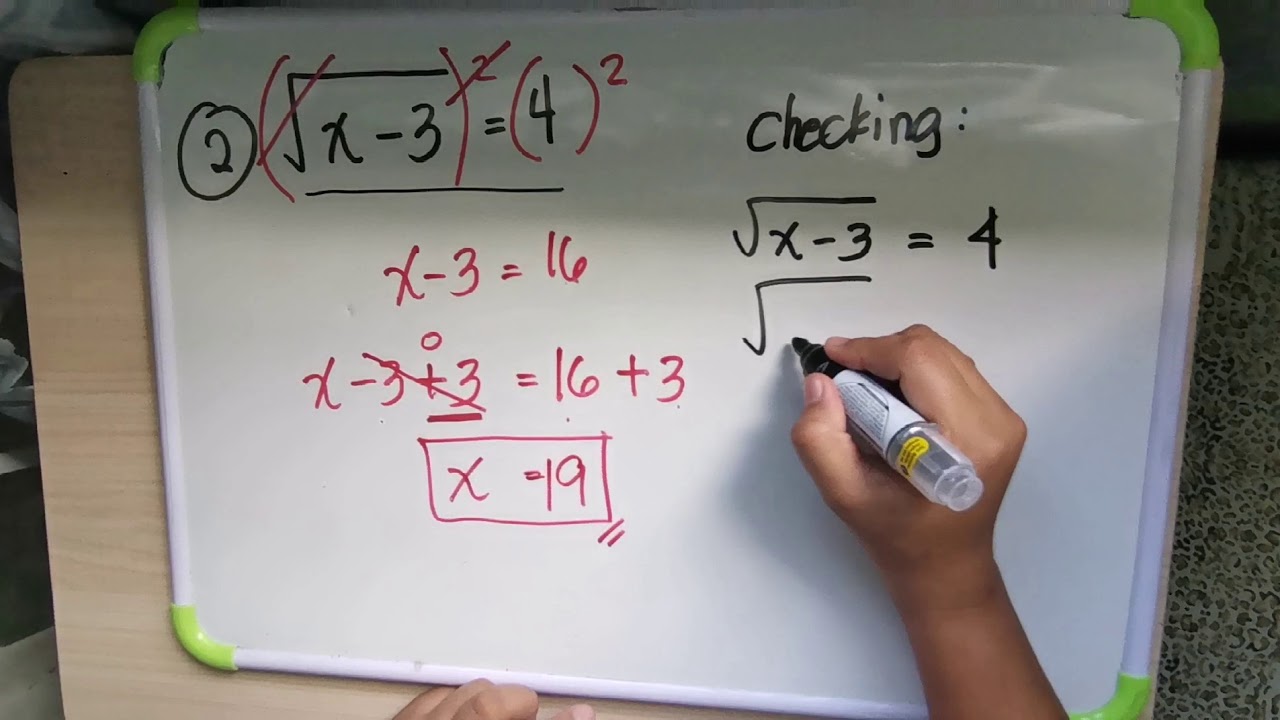 ② (√x-3)² = (4)²
x-3 = 16
0
x-3+3 = 16+3
x =19
checking:
√x-3 = 4
√